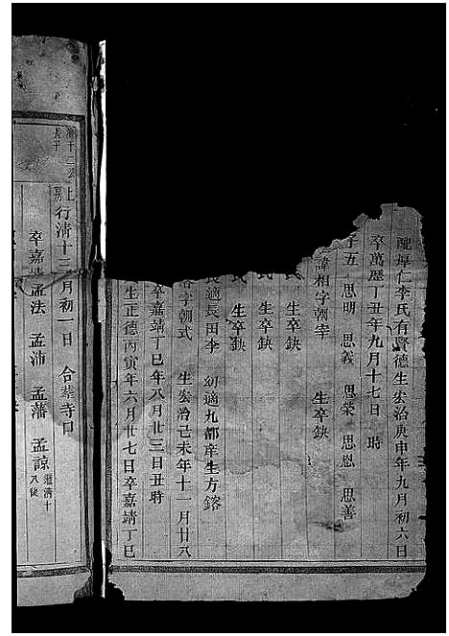 配厚仁李氏有賢德生宏治庚申年九月初六日
卒萬歷丁丑年九月十七日 時
子五 思明 思義 思榮 思恩 思善
諱相字朝宰 生卒缺
氏 生卒缺
氏 生卒缺
長適長田李 幼適九都辛生方鎔
容字朝式 生宏治己未年十一月廿八
卒嘉靖丁巳年八月廿三日丑時
生正德丙寅年六月廿七日卒嘉靖丁巳
上
行清十三
月初一日 合葬寺口
卒嘉靖
孟法 孟沛 孟藩 孟諒